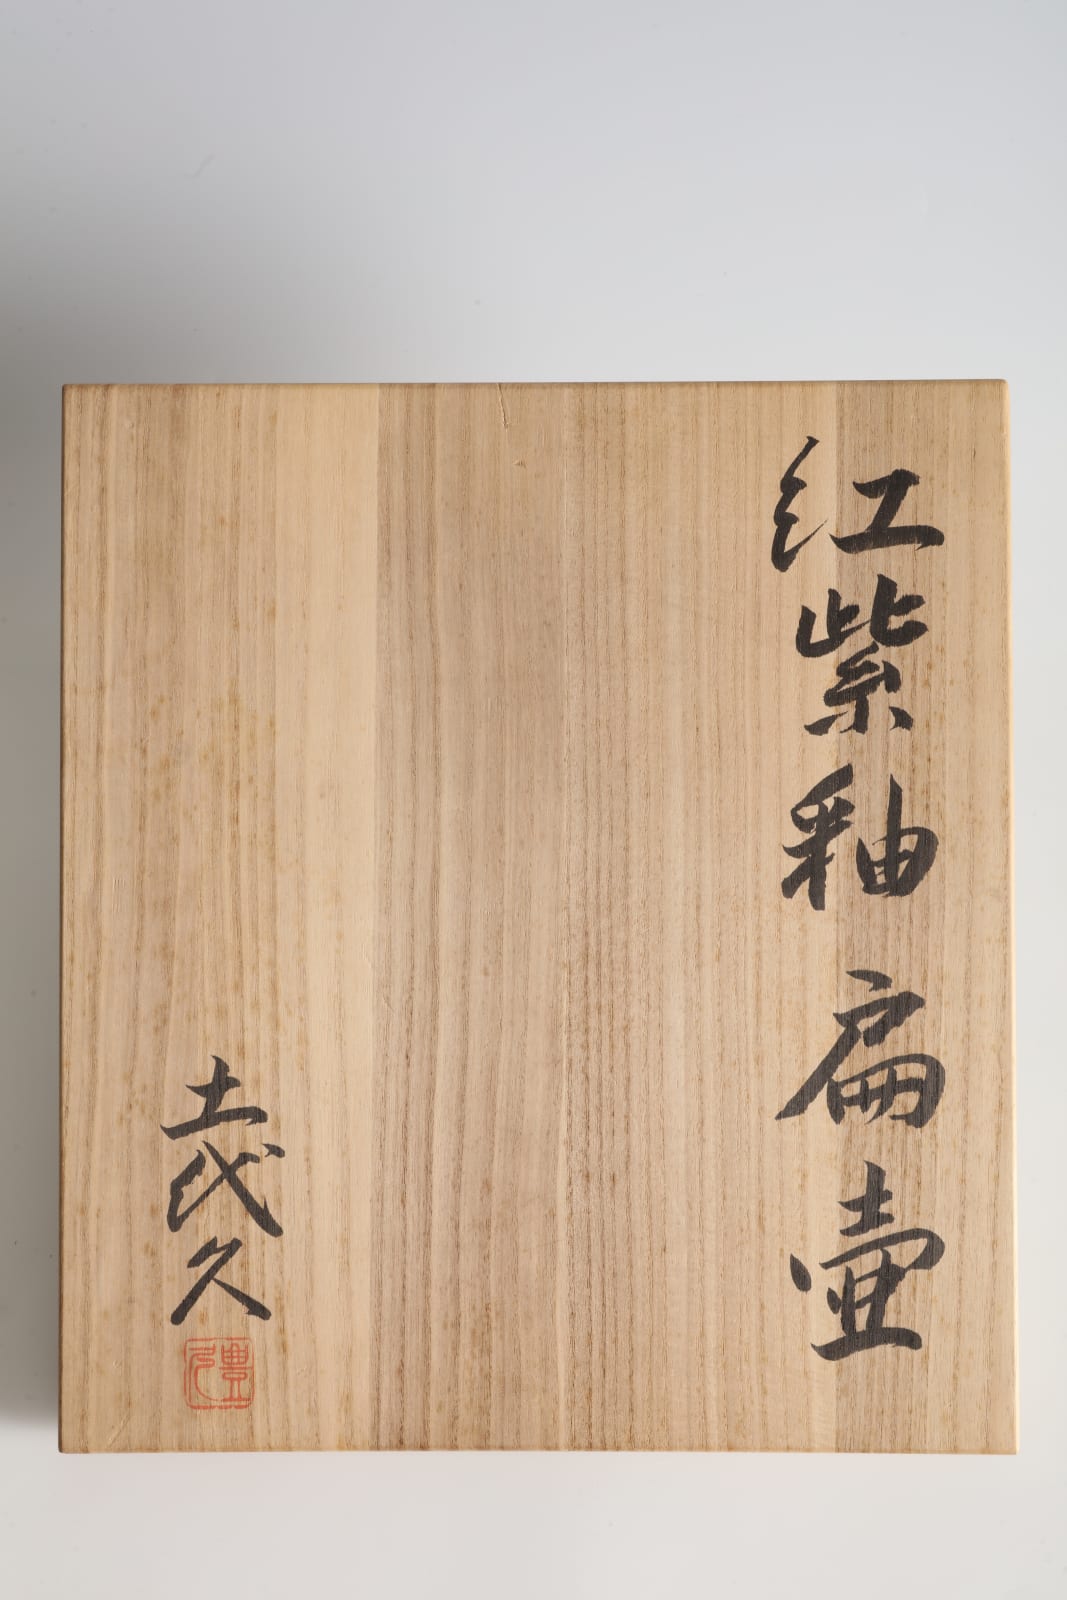 紅紫釉扁壷
土代久